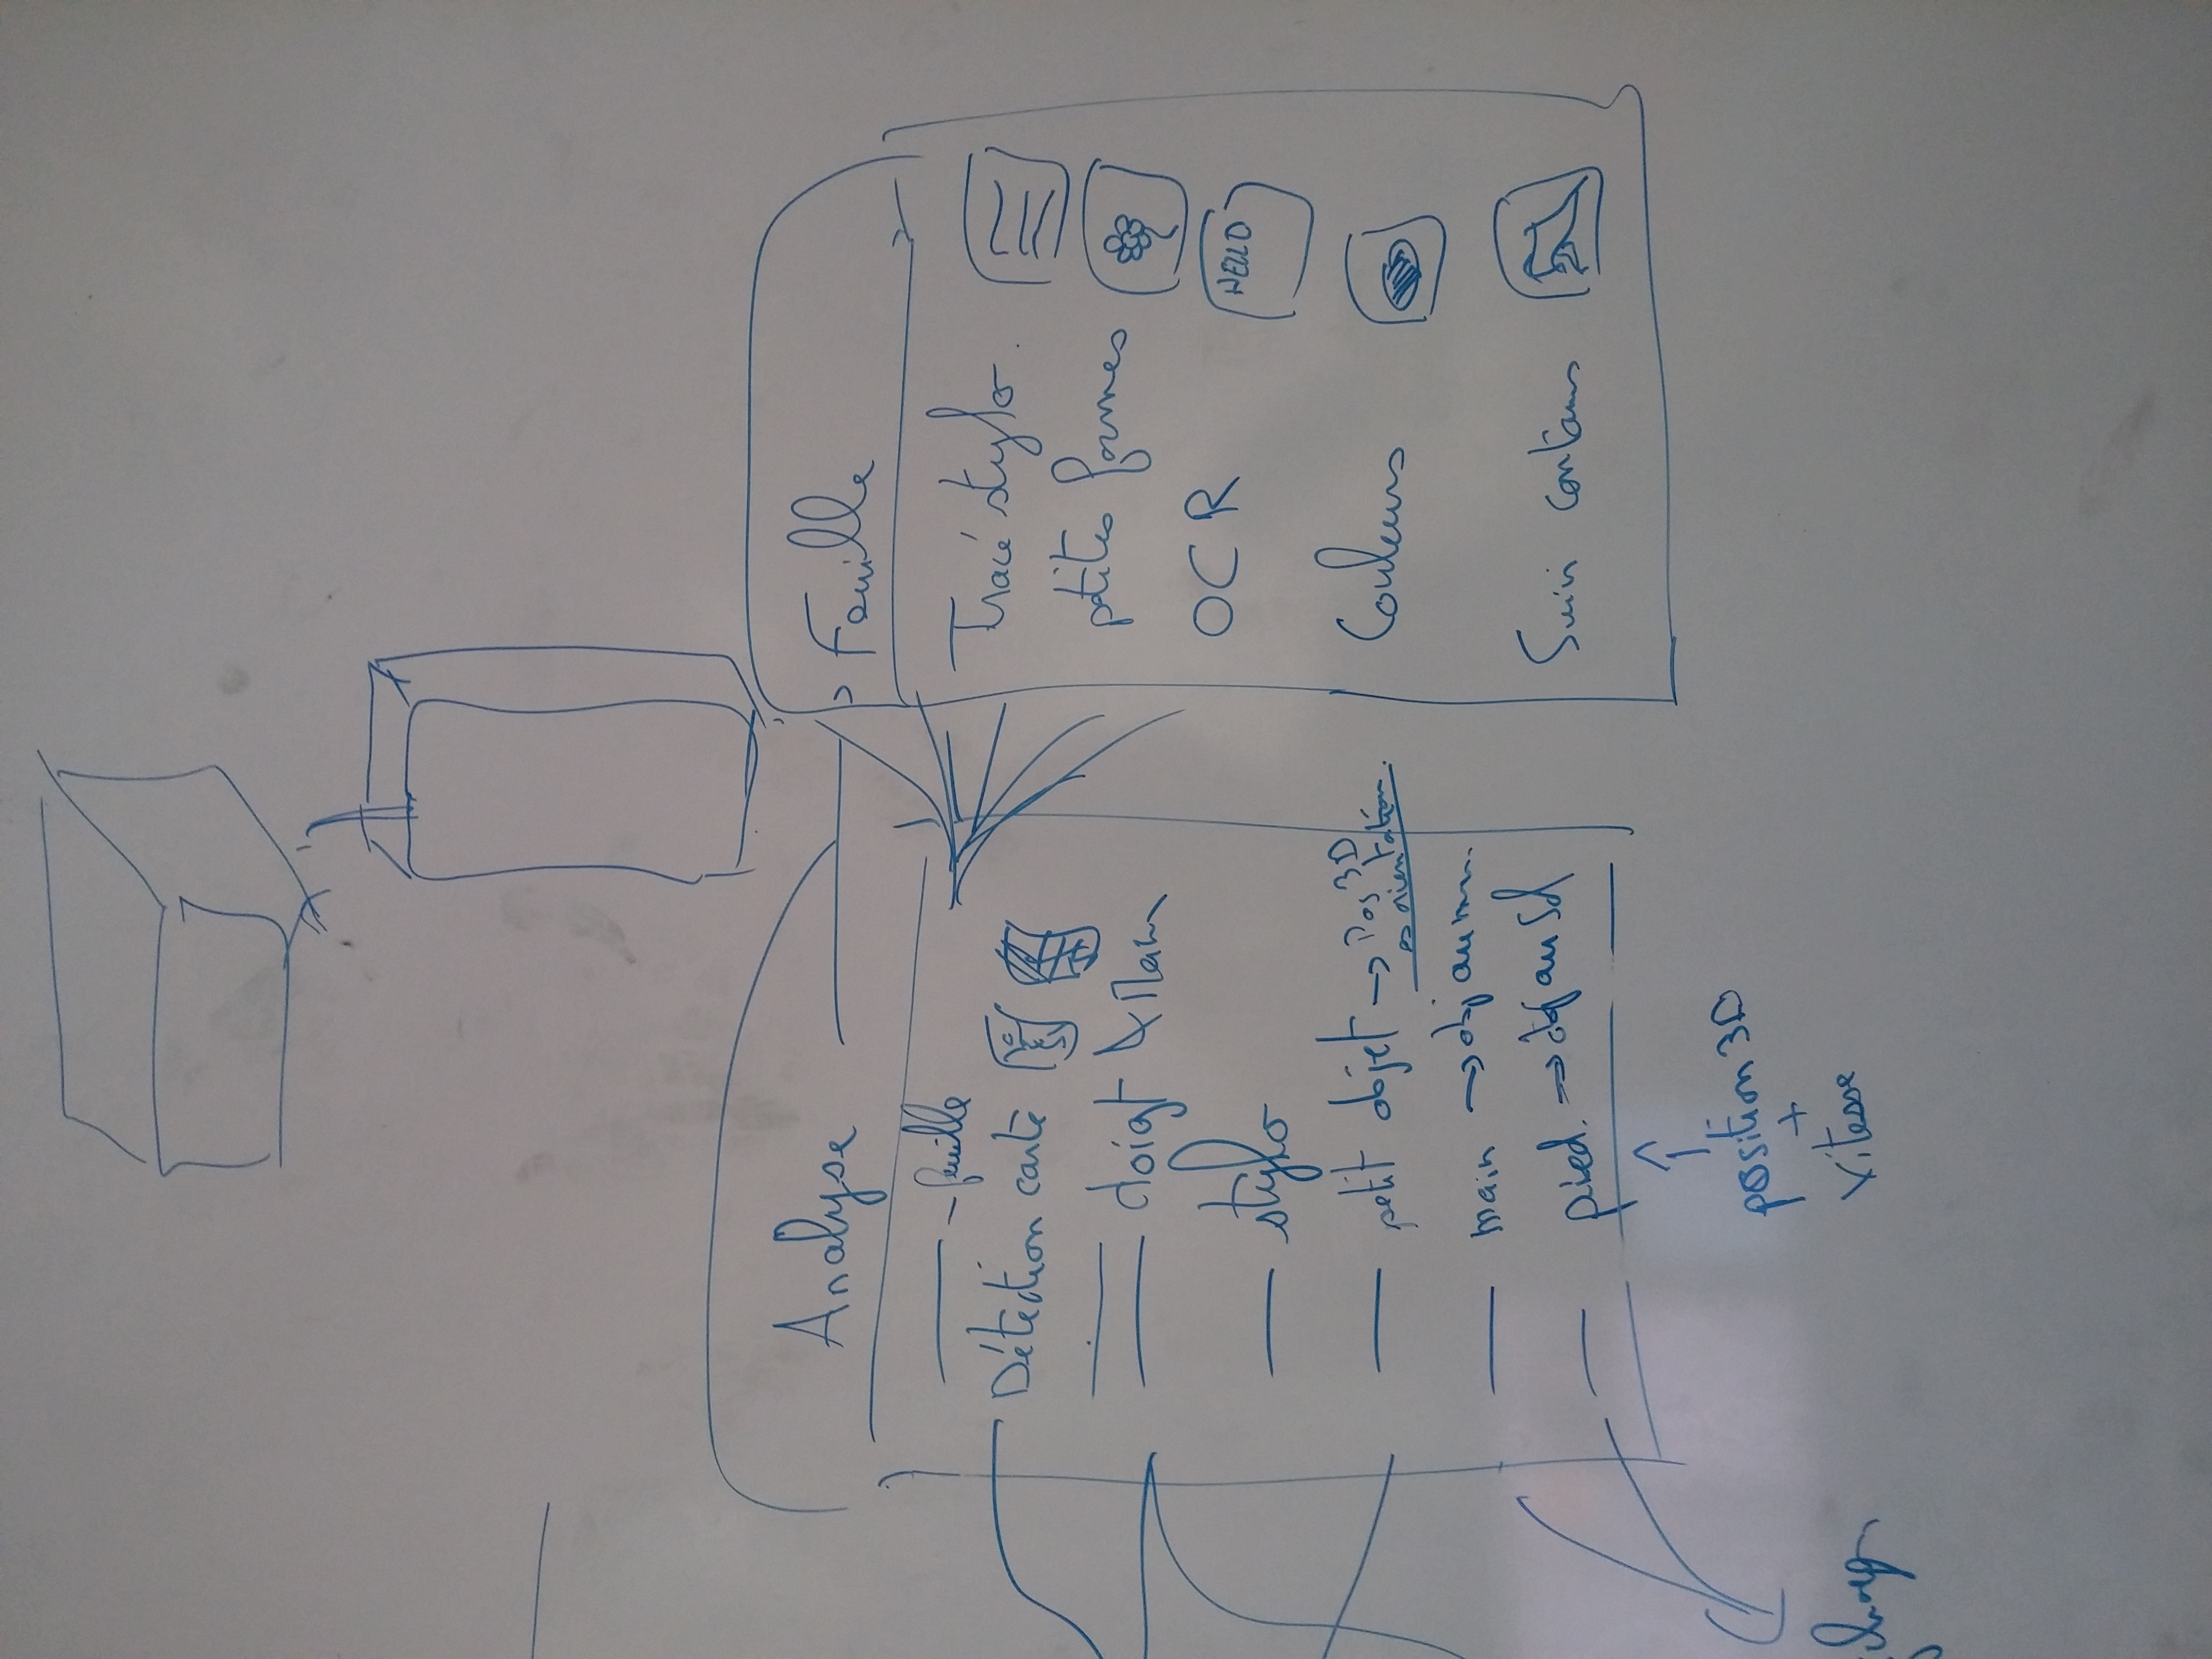 Analyse
- feuille
Détection carte
doigt & Main
stylo
petit objet → Pos 3D
orientation.
main → obj au
pied. → obj au sol
position 3D
+
Vitesse
Feuille
Tracé stylo.
petites formes
OCR
HELLO
Couleurs
Suivi contours